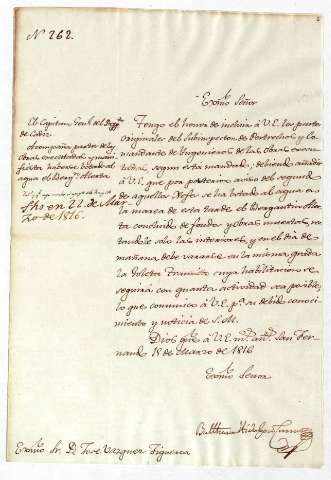 N. 262.
Exmo Señor
El Capitan Genl. del Depto
de Cadiz
Acompaña partes de las
obras executadas y mani-
fiesta haberse botado al
agua el Bergn. Alerta
fho en 22. de Mar-
zo de 1816.
Tengo el honor de incluir á V.E. los partes
originales del Subinspector de Pertrechos y Co-
mandante de Ingenieros de las obras execu-
tadas, segun esta mandado; debiendo añadir
á V.E. que por posterior aviso del segundo
de aquellos Xefes se ha botado al agua en
la marea de esta tarde el Bergantin Aler-
ta concluido de fondos y obras muertas, res-
tandole solo las interiores, y en el dia de
mañana debe vararse en la misma grada
la Goleta cuya habilitacion se
seguirá con quanta actividad sea posible,
lo que comunico á V.E. pa. su debido conoci-
miento y noticia de S.M.
Dios gue. á V.E. ms. as. San Fer-
nando 18 de Marzo de 1816
Exmo Senor
Balthasar Hidalgo de Cisneros
Exmo Sr. Dn. Jose Vazquez Figueroa